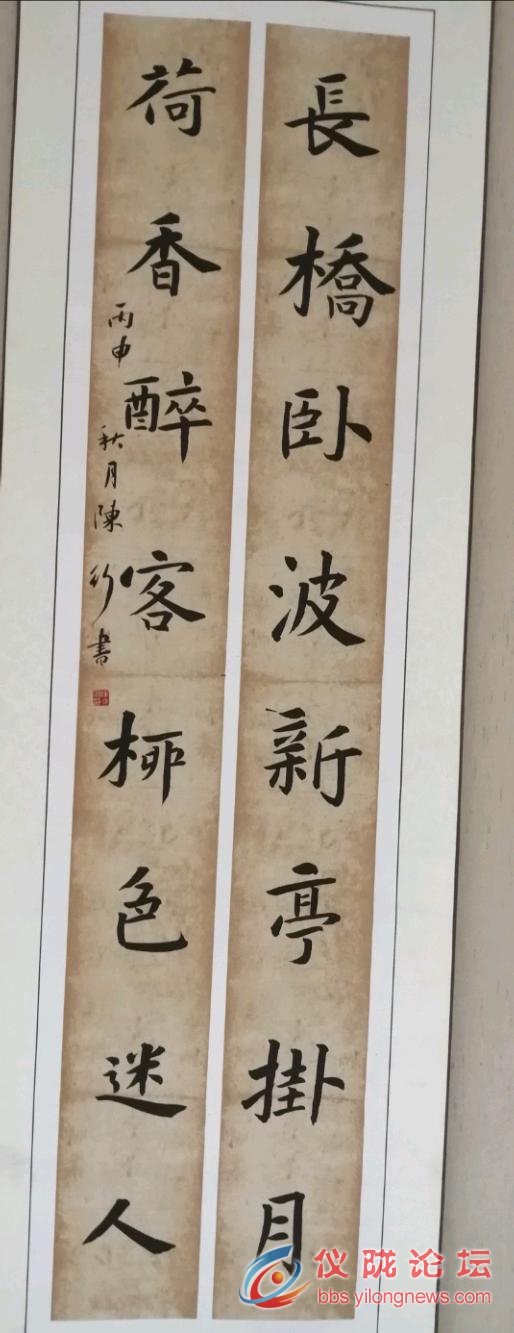 長橋卧波新亭掛月
荷香醉客柳色迷人
丙申秋月陳行書
仪陇论坛
bbs.yilongnews.com